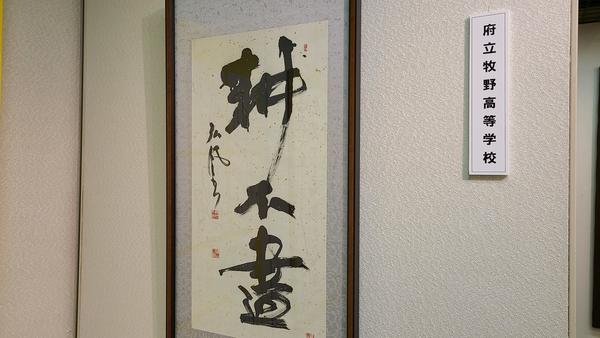 耕不盡
府立牧野高等学校